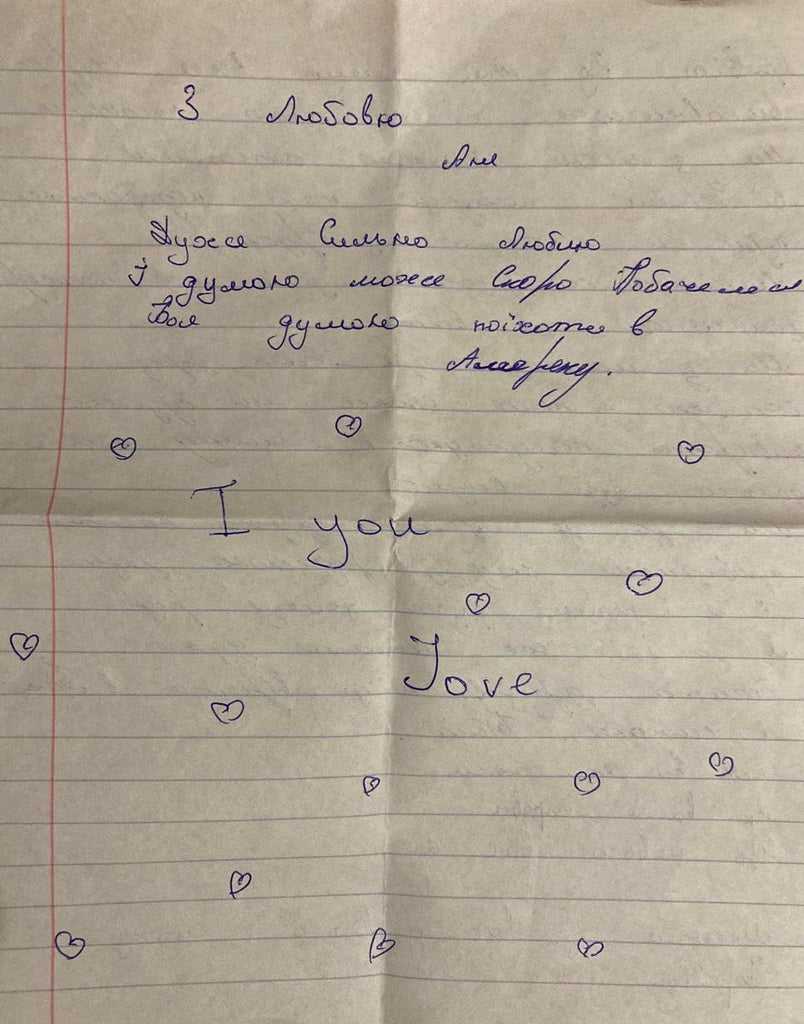 З Любовю
Аня
Дуже Сильно Люблю
І думою може Скоро Побачемося
Бо я думою поїхати в
Амереку.
I you
Love